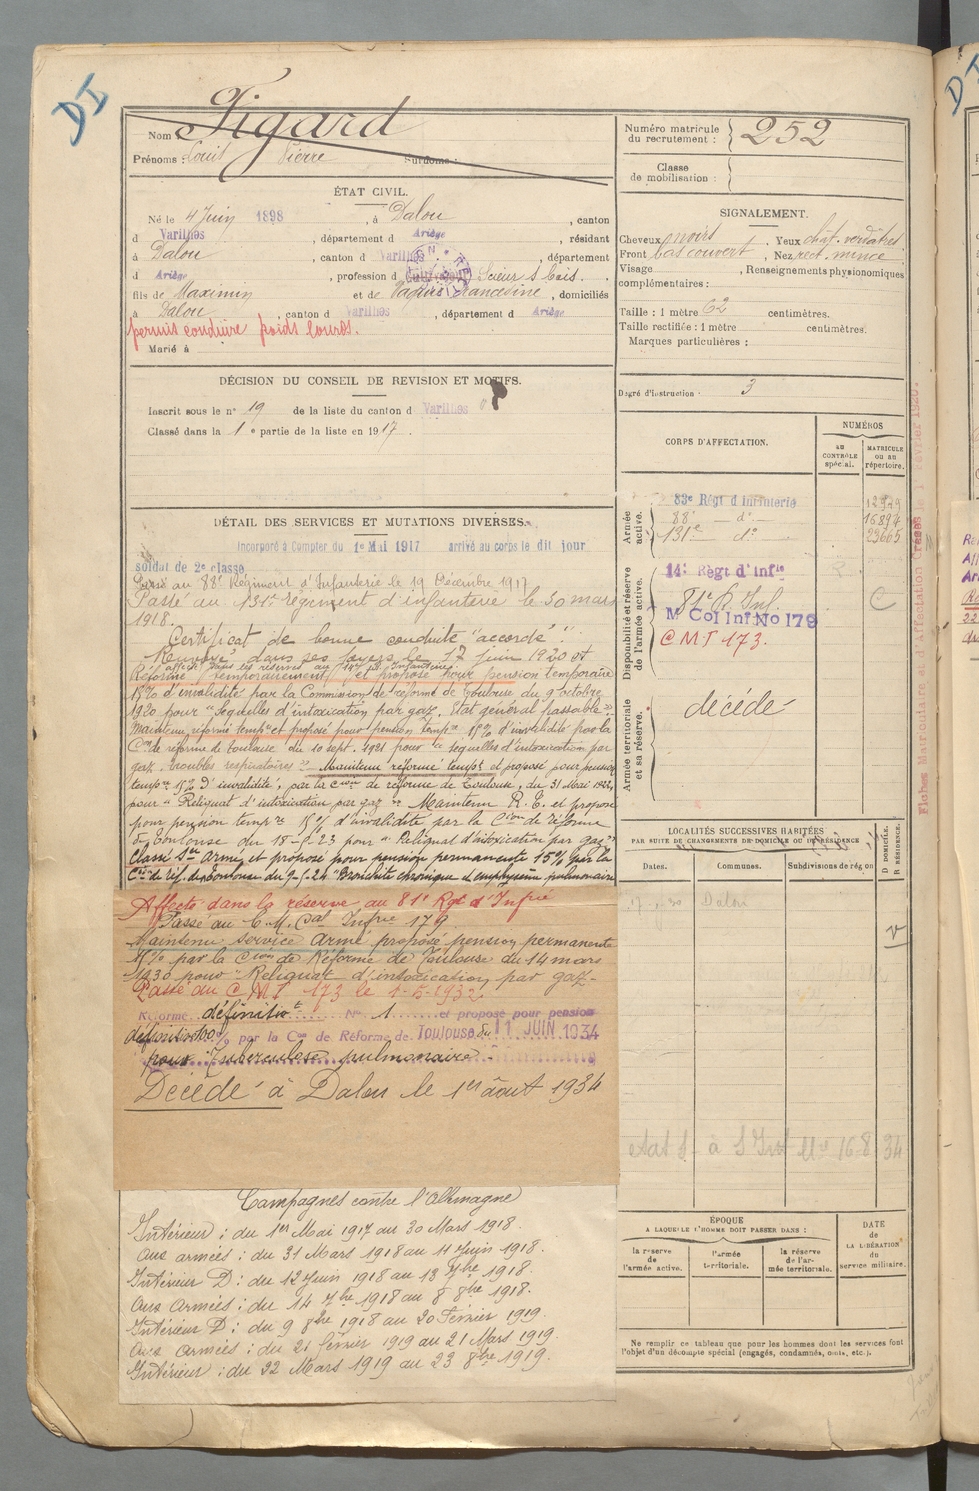 DI
Nom : Figard
Prénoms : Louis Pierre Surnoms :
Numéro matricule du recrutement : 252
Classe de mobilisation :
ÉTAT CIVIL.
Né le 4 Juin 1898, à Dalou, canton
d Varilhes, département d Ariège, résidant
à Dalou, canton d Varilhes, département
d Ariège, profession d Cultivateur Scieur s bois.
fils de Maximin et de, domiciliés
à Dalou, canton d Varilhes, département d Ariège
permis conduire poids lourds.
Marié à
SIGNALEMENT.
Cheveux noirs. Yeux chât. verdâtres.
Front bas couvert. Nez rect. mince
Visage, Renseignements physionomiques
complémentaires :
Taille : 1 mètre 62 centimètres.
Taille rectifiée : 1 mètre centimètres.
Marques particulières :
Degré d'instruction : 3
DÉCISION DU CONSEIL DE REVISION ET MOTIFS.
Inscrit sous le n° 19 de la liste du canton d Varilhes
Classé dans la 1e partie de la liste en 1917.
CORPS D'AFFECTATION.
NUMÉROS
au CONTRÔLE spécial.
MATRICULE ou au répertoire.
Armée active.
83e Régt d'Infanterie
88e d°
131e d°
Disponibilité et réserve de l'armée active.
14e Régt d'Infie
81e R. Inf.
M Col Inf No 179
C M I 173.
C
Armée territoriale et sa réserve.
décédé
DÉTAIL DES SERVICES ET MUTATIONS DIVERSES.
Incorporé à compter du 1e Mai 1917 arrivé au corps le dit jour
soldat de 2e classe
Passé au 88e Régiment d'Infanterie le 19 Décembre 1917
Passé au 131e régiment d'infanterie le 30 mars
1918.
Certificat de bonne conduite "accordé".
Renvoyé dans ses foyers le 17 juin 1920 et
affecté dans les réserves au 14e Rt Infanterie
Réformé temporairement et proposé pour pension temporaire
15% d'invalidité par la Commission de réforme de Toulouse du 9 octobre
1920 pour "Sequelles d'intoxication par gaz. Etat général passable".
Maintenu réformé tempre et proposé pour pension tempre 15% d'invalidité par la
Con de réforme de Toulouse du 10 sept. 1921 pour "sequelles d'intoxication par
gaz, troubles respiratoires". Maintenu réformé tempt et proposé pour pension
tempre 15% d'invalidité, par la Cion de réforme de Toulouse, du 31 Mai 1922,
pour "Reliquat d'intoxication par gaz". Maintenu R. T. et proposé
pour pension tempre 15% d'invalidité par la Cion de réforme
de Toulouse du pour "Reliquat d'intoxication par gaz"
Classé Sce armé et proposé pour pension permanente 15% par la
Con de réf. de Toulouse du "Bronchite chronique et emphysème pulmonaire
Affecté dans la réserve au 81e Rgt d'Infrie
Passé au C. M. Cal Infrie 179
Maintenu service armé proposé pension permanente
15% par la Cion de Réforme de Toulouse du 14 mars
1930 pour "Reliquat d'intoxication par gaz"
Passé au C M I 173 le 1-5-1932
Réformé définitivt N° 1 et proposé pour pension
définitive 100% par la Con de Réforme de Toulouse du 11 JUIN 1934
pour "Tuberculose pulmonaire"
Décédé à Dalou le 1er août 1934
Campagnes contre l'Allemagne
Intérieur : du 1er Mai 1917 au 30 Mars 1918.
Aux armées : du 31 Mars 1918 au 11 Juin 1918.
Intérieur D : du 12 Juin 1918 au 13 7bre 1918.
Aux Armées : du 14 7bre 1918 au 8 8bre 1918.
Intérieur D : du 9 8bre 1918 au 20 Février 1919.
Aux armées : du 21 février 1919 au 21 Mars 1919.
Intérieur : du 22 Mars 1919 au 23 8bre 1919.
LOCALITÉS SUCCESSIVES HABITÉES
PAR SUITE DE CHANGEMENTS DE DOMICILE OU DE RÉSIDENCE
Dates. Communes. Subdivisions de région
D DOMICILE. R RÉSIDENCE.
Dalou
ÉPOQUE
A LAQUELLE L'HOMME DOIT PASSER DANS :
la réserve de l'armée active.
l'armée territoriale.
la réserve de l'armée territoriale.
DATE de LA LIBÉRATION du service militaire.
Ne remplir ce tableau que pour les hommes dont les services font
l'objet d'un décompte spécial (engagés, condamnés, omis, etc.).